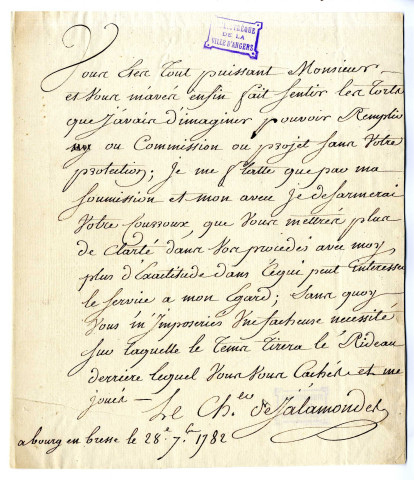 BIBLIOTHEQUE
DE LA
VILLE D'ANGERS
Vous etes Tout puissant Monsieur
et Vous m'avés enfin fait sentir les torts
que J'avais d'imaginer pouvoir Remplir
ou Commission ou projet sans Votre
protection; je me flatte que par ma
soumission et mon aveu je desarmerai
Votre courroux que Vous mettrés plus
de Clarté dans Vos procedés avec moy
plus d'Exactitude dans Cequi peut interesser
le service a mon Egard; Sans quoy
Vous m'Imposeriés Une facheuse necessité
sur laquelle le tems tirera le Rideau
derriere lequel Vous Vous Cachés et me
joués —
Le Ch.er de Jalamondes
a bourg en bresse le 28.e 7.bre 1782